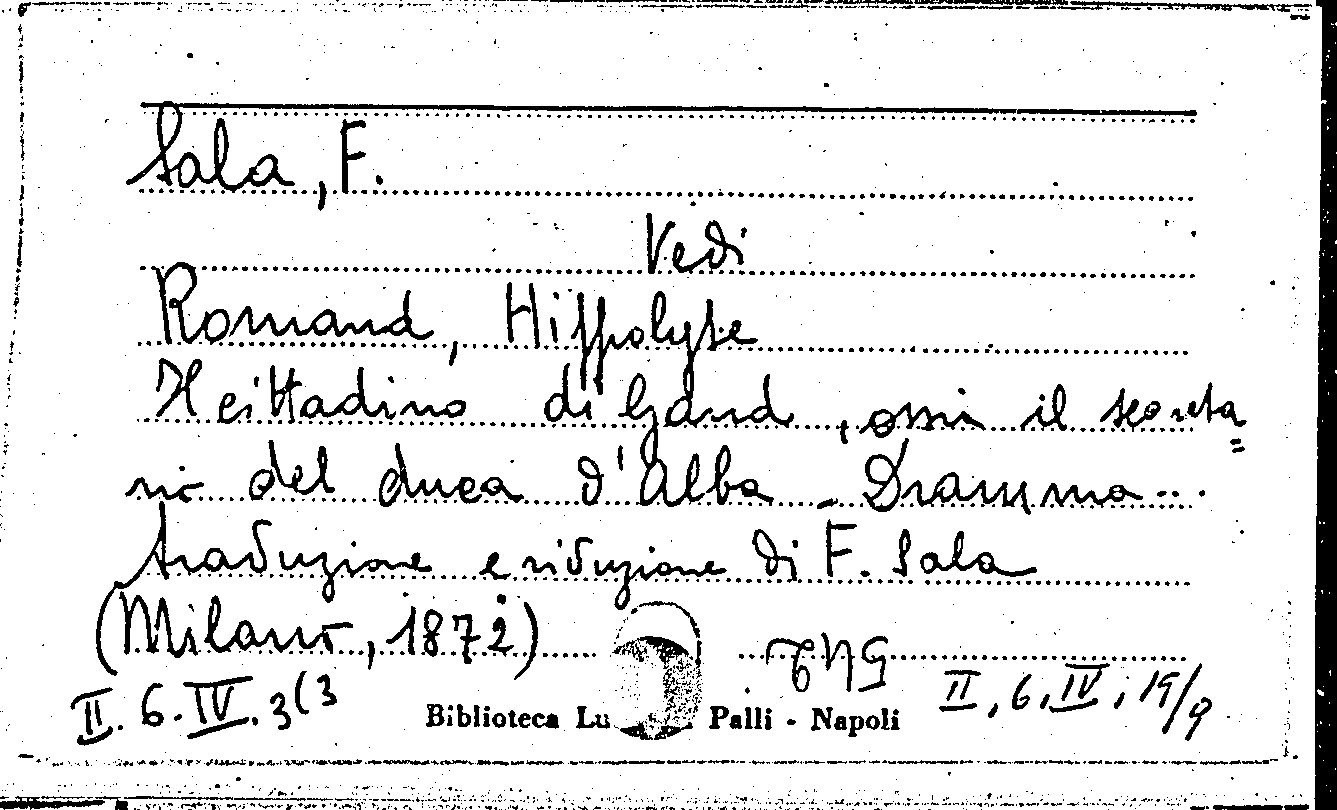 Sala, F.
Vedi
Romand, Hippolyte
Il cittadino di Gand, ossia il segreta=
rio del duca d'Alba - Dramma...
traduzione e riduzione di F. Sala
(Milano, 1872)
II. 6. IV. 3(3
II, 6, IV, 19/9
Biblioteca Lu Palli - Napoli